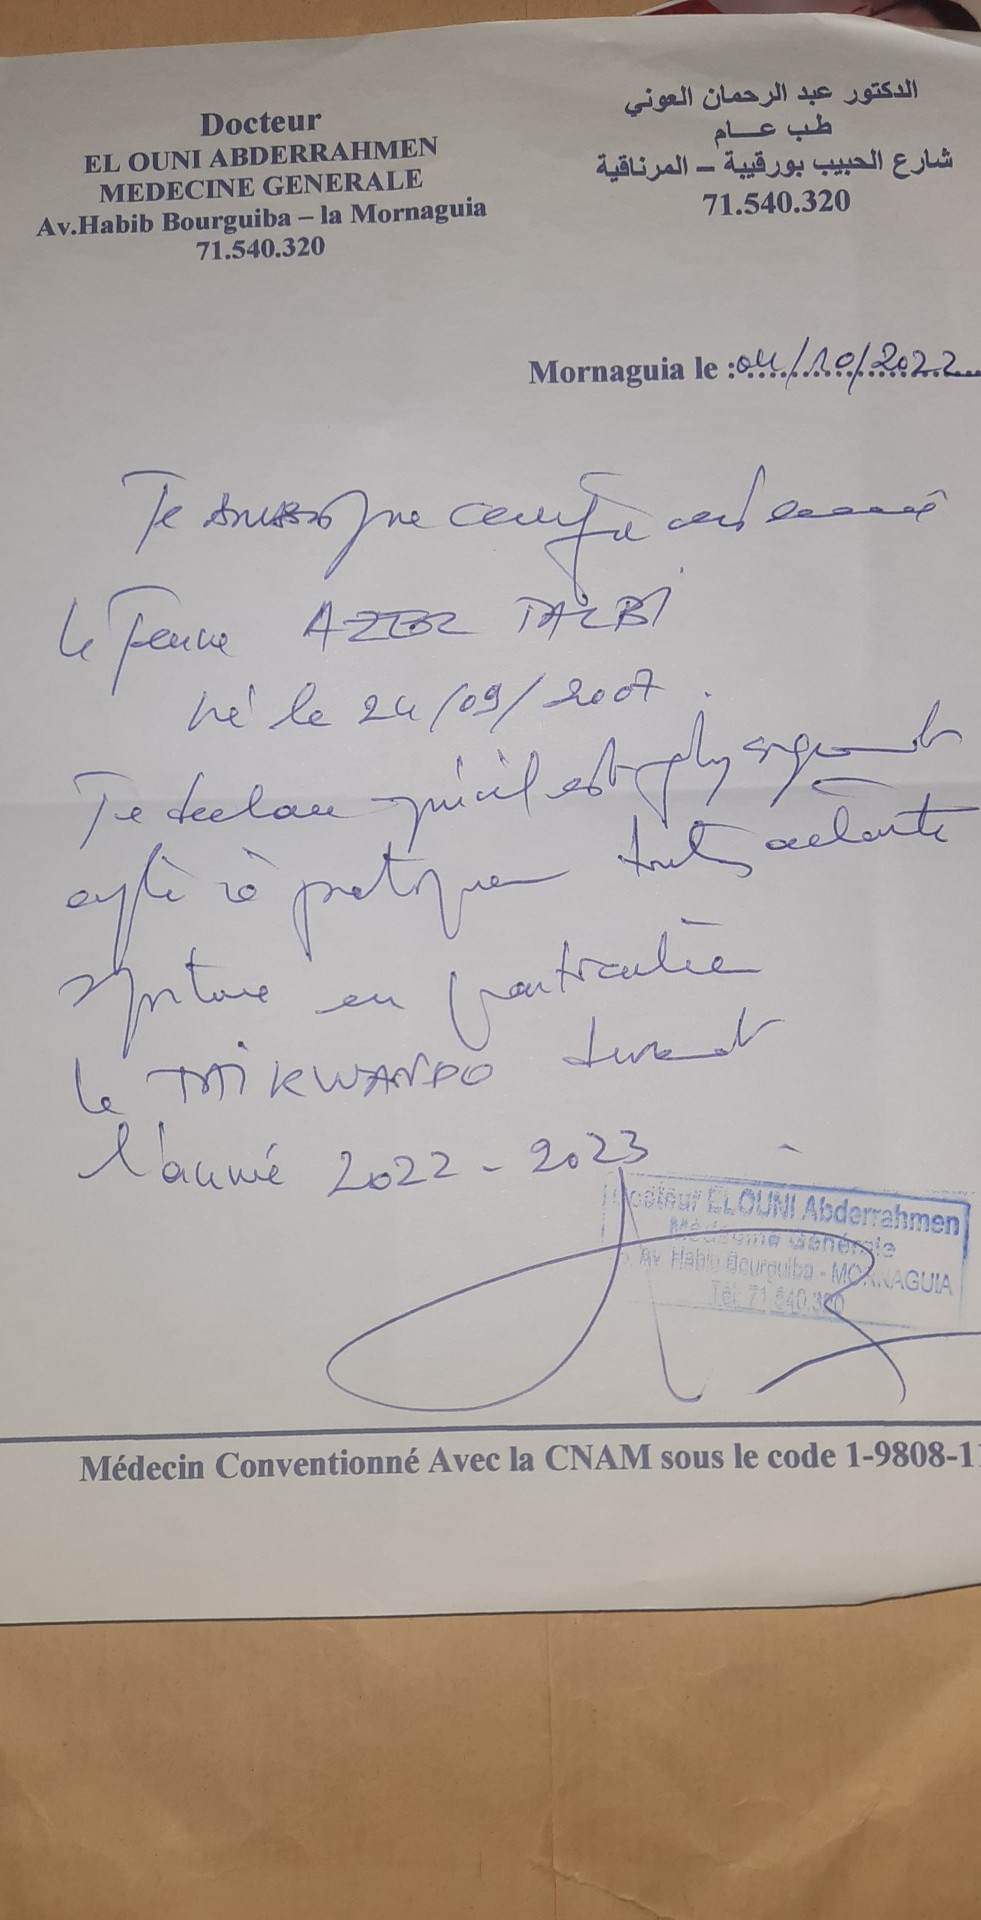 Docteur
EL OUNI ABDERRAHMEN
MEDECINE GENERALE
Av.Habib Bourguiba – la Mornaguia
71.540.320
الدكتور عبد الرحمان العوني
طب عـــام
شارع الحبيب بورقيبة – المرناقية
71.540.320
Mornaguia le : 04/10/2022
Je soussigné certifie avoir examiné
le jeune AZER TALBI
né le 24/09/2007.
Je déclare qu'il est physiquement
apte à pratiquer toutes activité
sportive en particulier
le TAIKWANDO durant
l'année 2022 - 2023
Docteur ELOUNI Abderrahmen
Médecine Générale
Av. Habib Bourguiba - MORNAGUIA
Tél: 71.540.320
Médecin Conventionné Avec la CNAM sous le code 1-9808-11